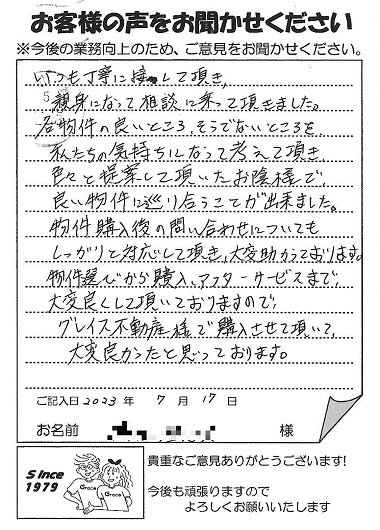 お客様の声をお聞かせください
※今後の業務向上のため、ご意見をお聞かせください。
いつも丁寧に接して頂き、
親身になって相談に乗って頂きました。
各物件の良いところ、そうでないところを
私たちの気持ちになって考えて頂き
色々と提案して頂いたお陰様で、
良い物件に巡り合うことが出来ました。
物件購入後の問い合わせについても
しっかりと対応して頂き、大変助かっております。
物件選びから購入、アフターサービスまで、
大変良くして頂いておりますので、
グレイス不動産様で購入させて頂いて、
大変良かったと思っております。
ご記入日 2023 年 7 月 17 日
お名前 様
Since
1979
Grace
Grace
貴重なご意見ありがとうございます!
今後も頑張りますので
よろしくお願いいたします